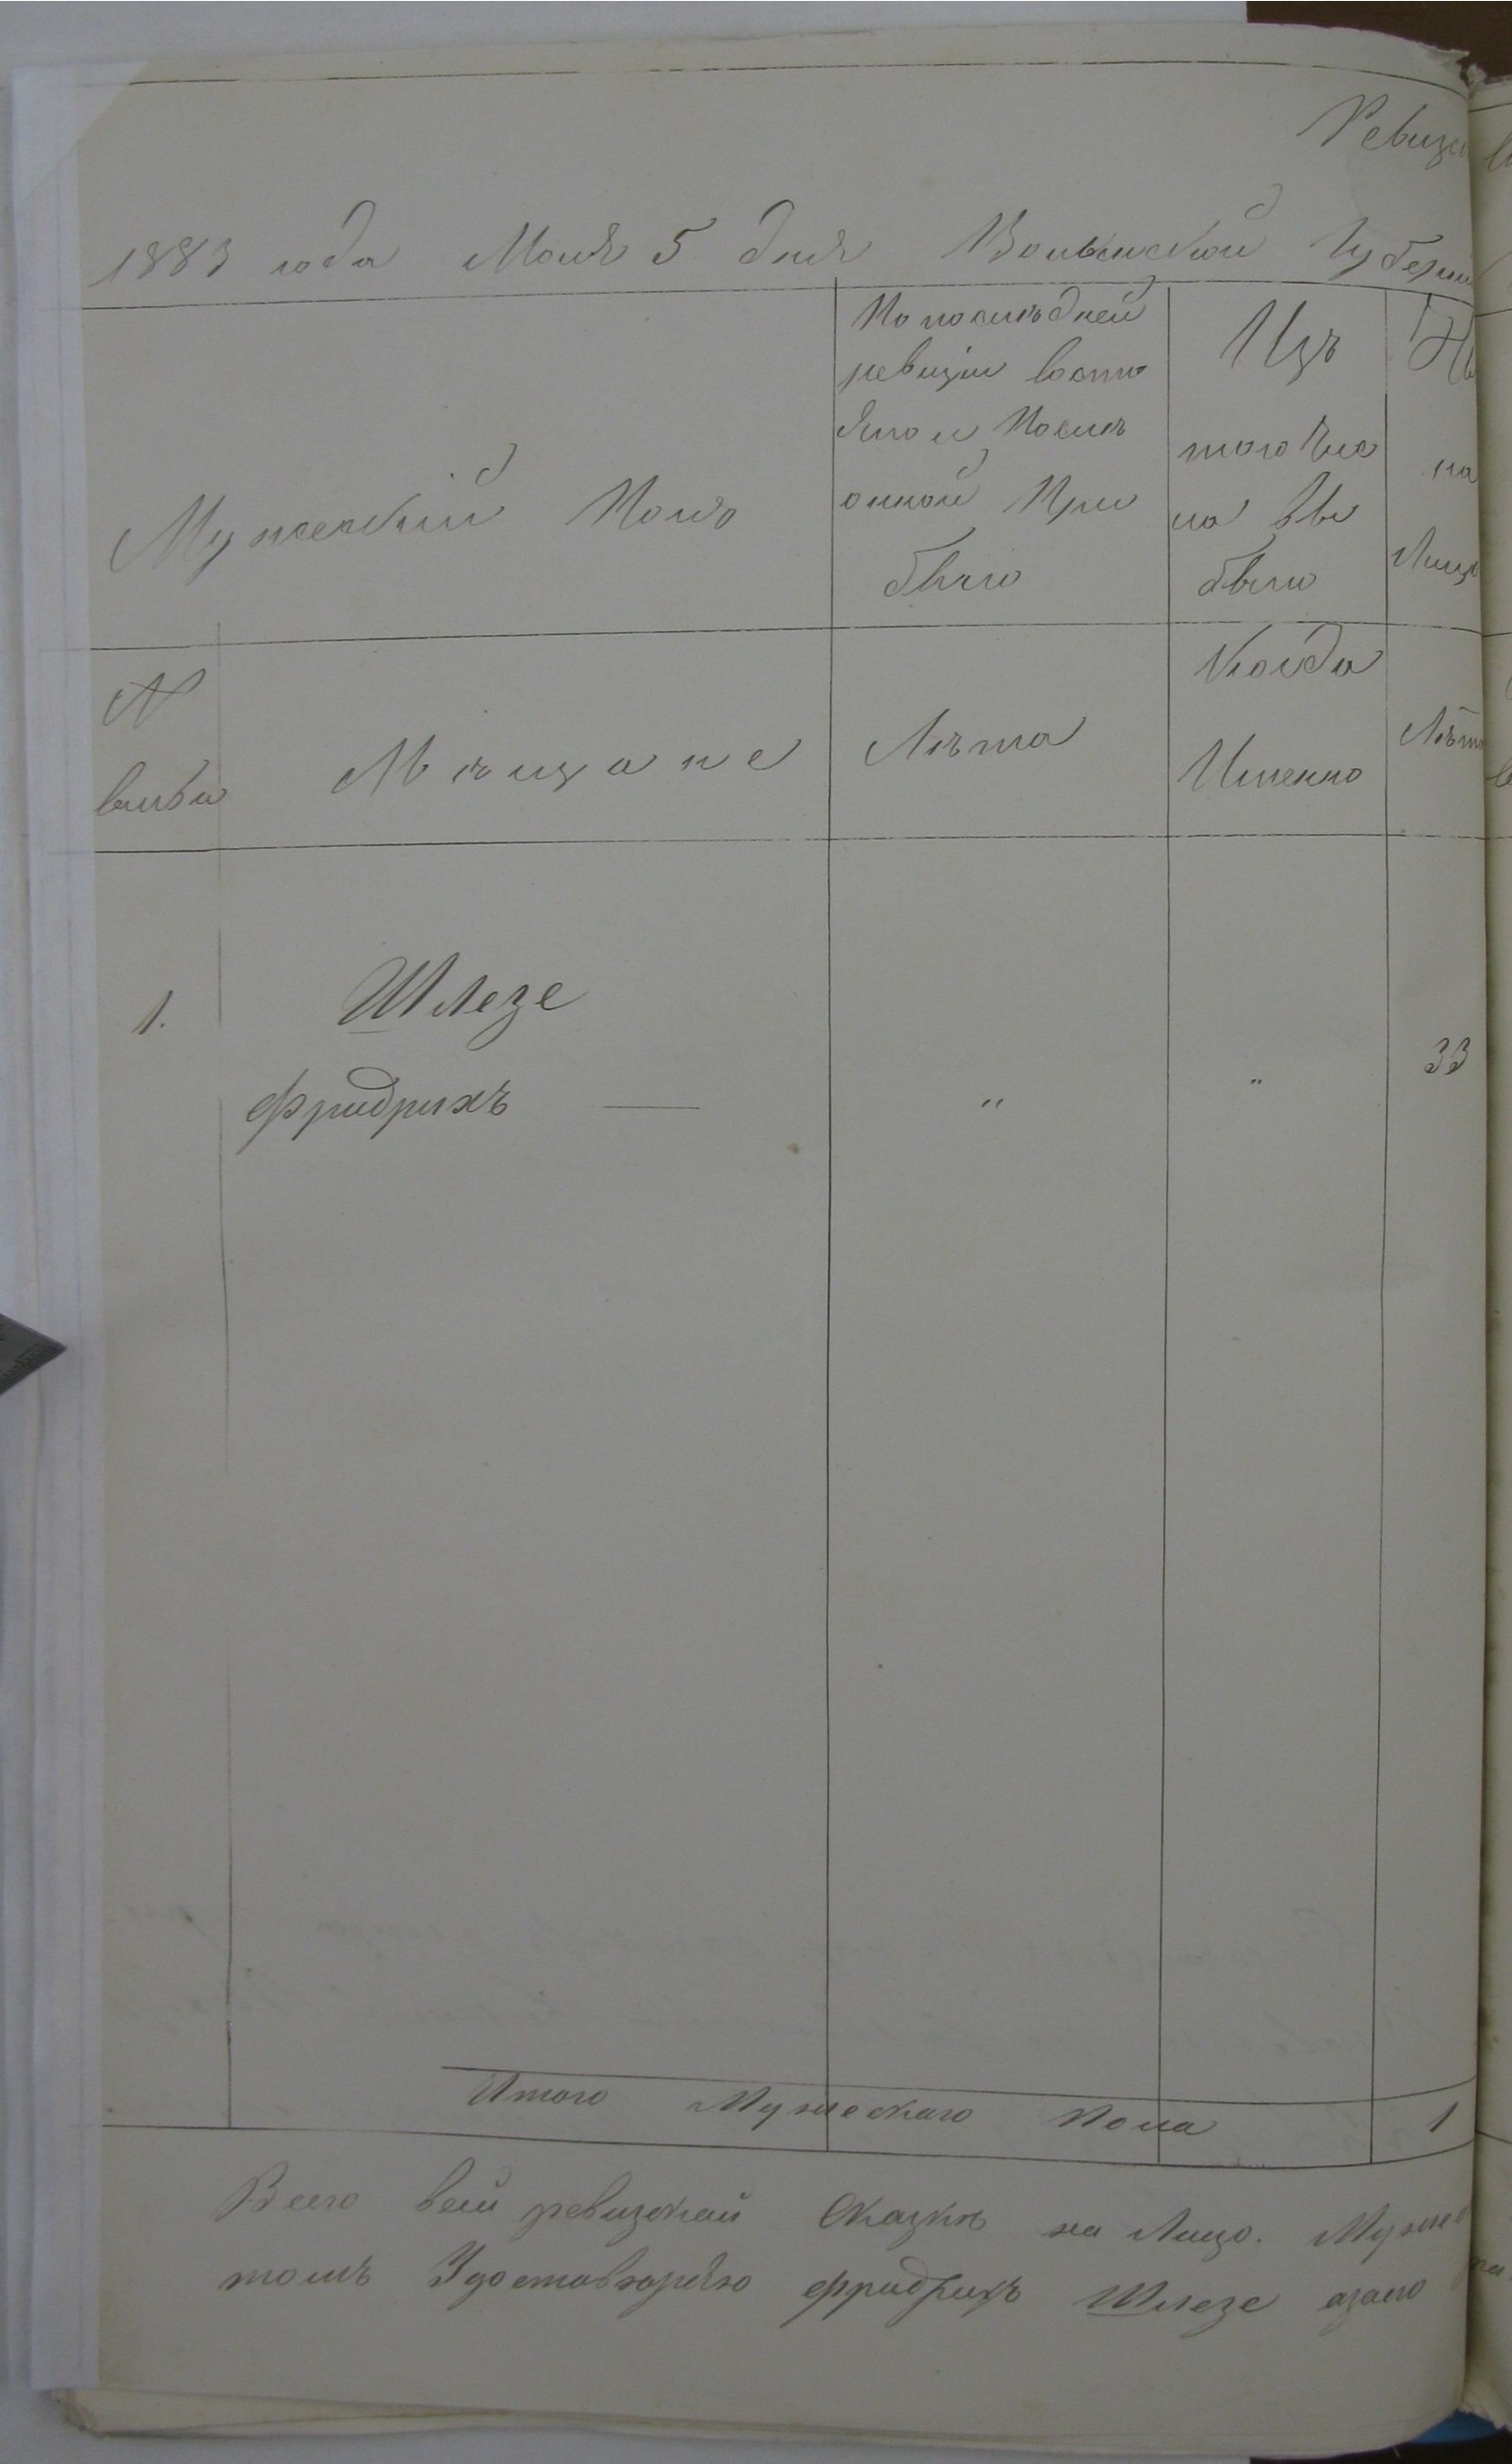 Ревизс
1883 года Маія 5 дня Волынской Губерн
Мужескій Полъ
По послѣдней
ревизіи состо
яло и Послѣ
онной При
было
Изъ
того Чис
ла Вы
было
на
Лицо
№
семьи
Мѣщане
Лѣта
Когда
Именно
Лѣта
1.
Шлезе
Фридрихъ —
"
"
33
Итого Мужескаго Пола 1
Всего всей ревизской Сказкѣ на Лицо. Мужес
томъ Удостовѣряю Фридрихъ Шлезе